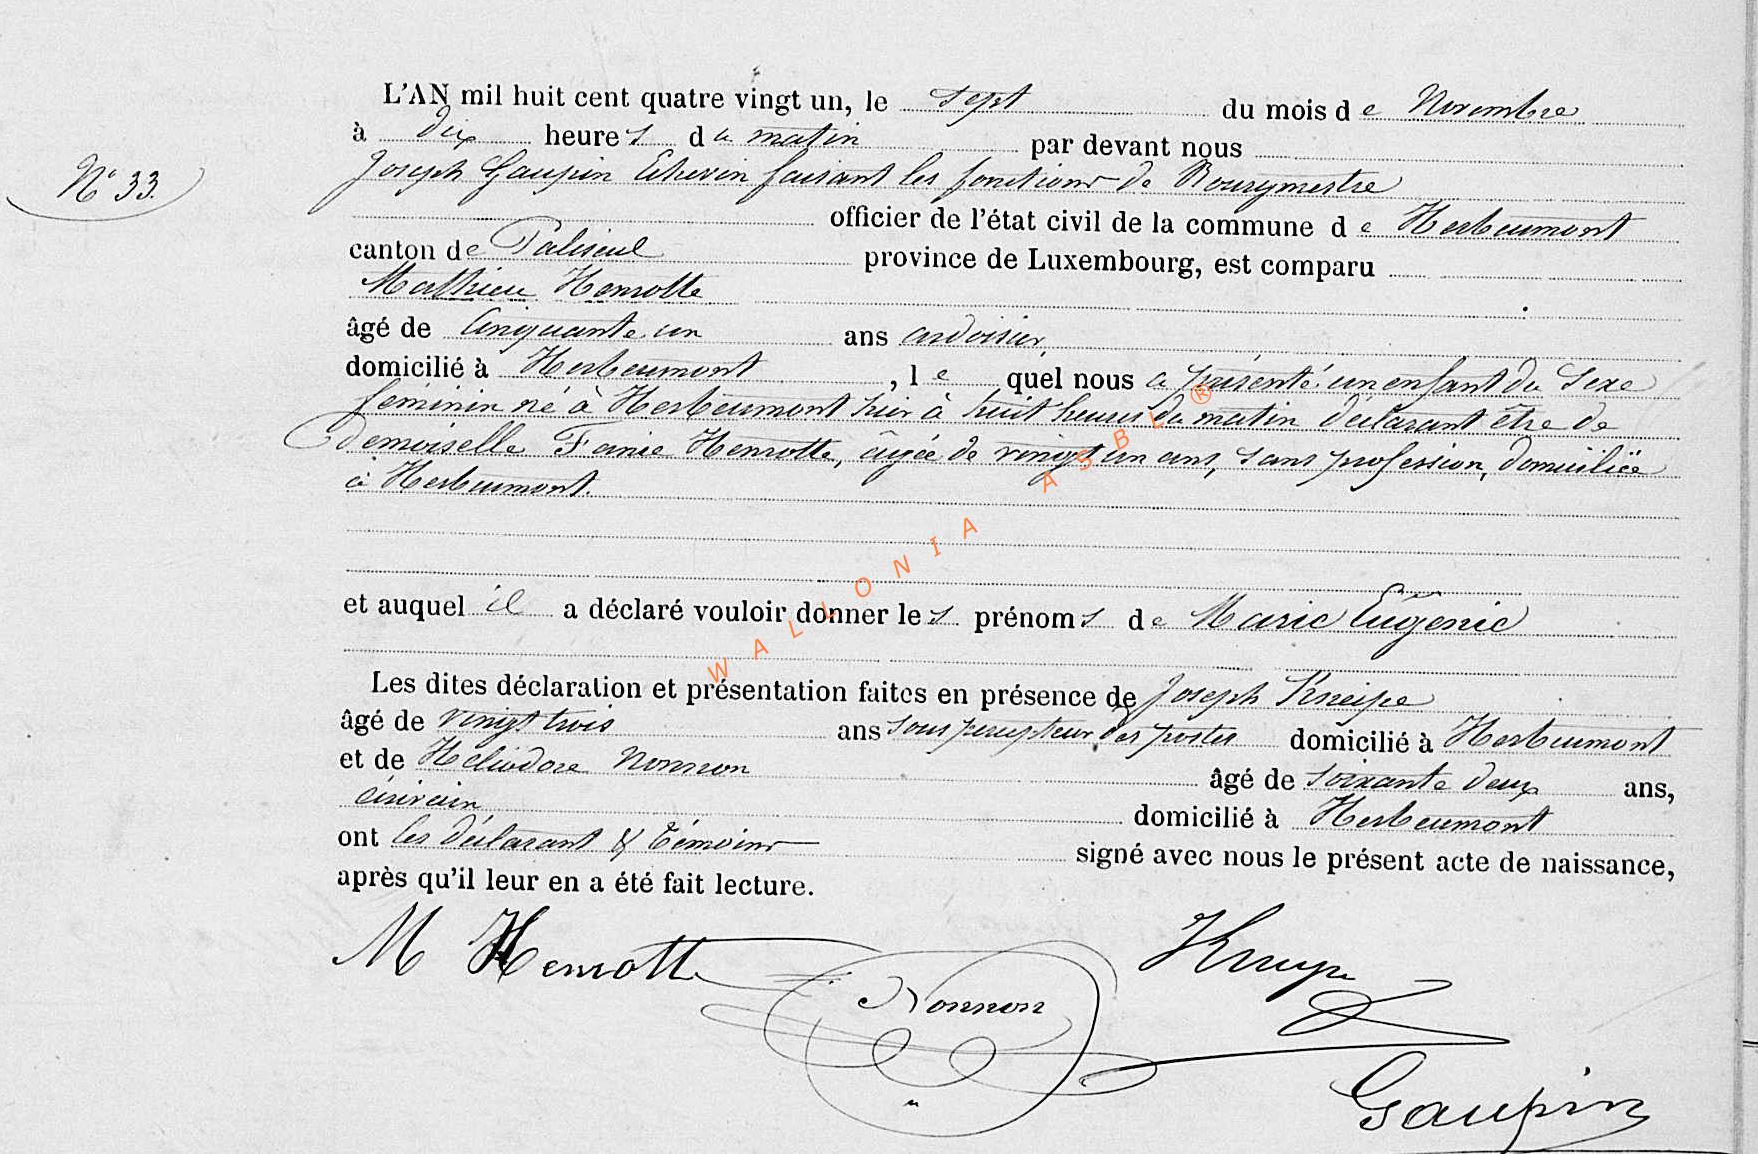 L'AN mil huit cent quatre vingt un, le sept du mois de Novembre
à dix heures du matin par devant nous
N° 33.
Joseph Gaupin Echevin faisant les fonctions de Bourgmestre
officier de l'état civil de la commune de Herbeumont
canton de Paliseul province de Luxembourg, est comparu
Mathieu Henrotte
âgé de Cinquante un ans ardoisier,
domicilié à Herbeumont, le quel nous a présenté un enfant du Sexe
féminin né à Herbeumont hier à huit heures du matin déclarant être de
Demoiselle Fanie Henrotte, âgée de vingt un ans, sans profession, domiciliée
à Herbeumont.
et auquel il a déclaré vouloir donner les prénoms de Marie Eugénie
Les dites déclaration et présentation faites en présence de Joseph Kneipe
âgé de vingt trois ans sous percepteur des postes domicilié à Herbeumont
et de Héliodore Nonnon âgé de soixante deux ans,
écrivain domicilié à Herbeumont
ont les déclarant & témoins signé avec nous le présent acte de naissance,
après qu'il leur en a été fait lecture.
M Henrotte
Nonnon
Gaupin
WALLONIA ASBL ®